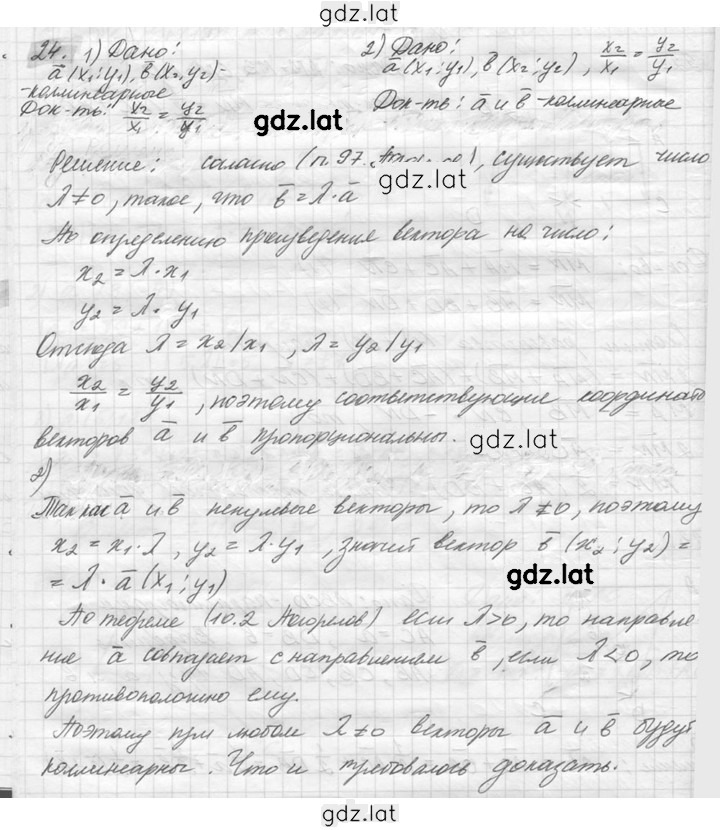 gdz.lat
24. 1) Дано: 2) Дано:
a̅ (x₁; y₁), b̅ (x₂, y₂) - a̅ (x₁; y₁), b̅ (x₂; y₂), x₂/x₁ = y₂/y₁
-коллинеарные
Док-ть: x₂/x₁ = y₂/y₁ Док-ть: a̅ и b̅ - коллинеарные
gdz.lat
Решение: согласно (п 97.), существует число
gdz.lat
λ≠0, такое, что b̅ = λ·a̅
По определению произведения вектора на число:
x₂ = λ·x₁
y₂ = λ· y₁
Отсюда λ = x₂/x₁, λ = y₂/y₁
x₂/x₁ = y₂/y₁, поэтому соответствующие координаты
векторов a̅ и b̅ пропорциональны.
gdz.lat
2)
Так как a̅ и b̅ ненулевые векторы, то λ≠0, поэтому
x₂ = x₁·λ, y₂ = λ·y₁, значит вектор b̅ (x₂; y₂) =
= λ· a̅ (x₁; y₁)
gdz.lat
По теореме (10.2 Погорелов) если λ>0, то направле
ние a̅ совпадает с направлением b̅, если λ<0, то
противоположно ему.
Поэтому при любом λ≠0 векторы a̅ и b̅ будут
коллинеарны. Что и требовалось доказать.
gdz.lat